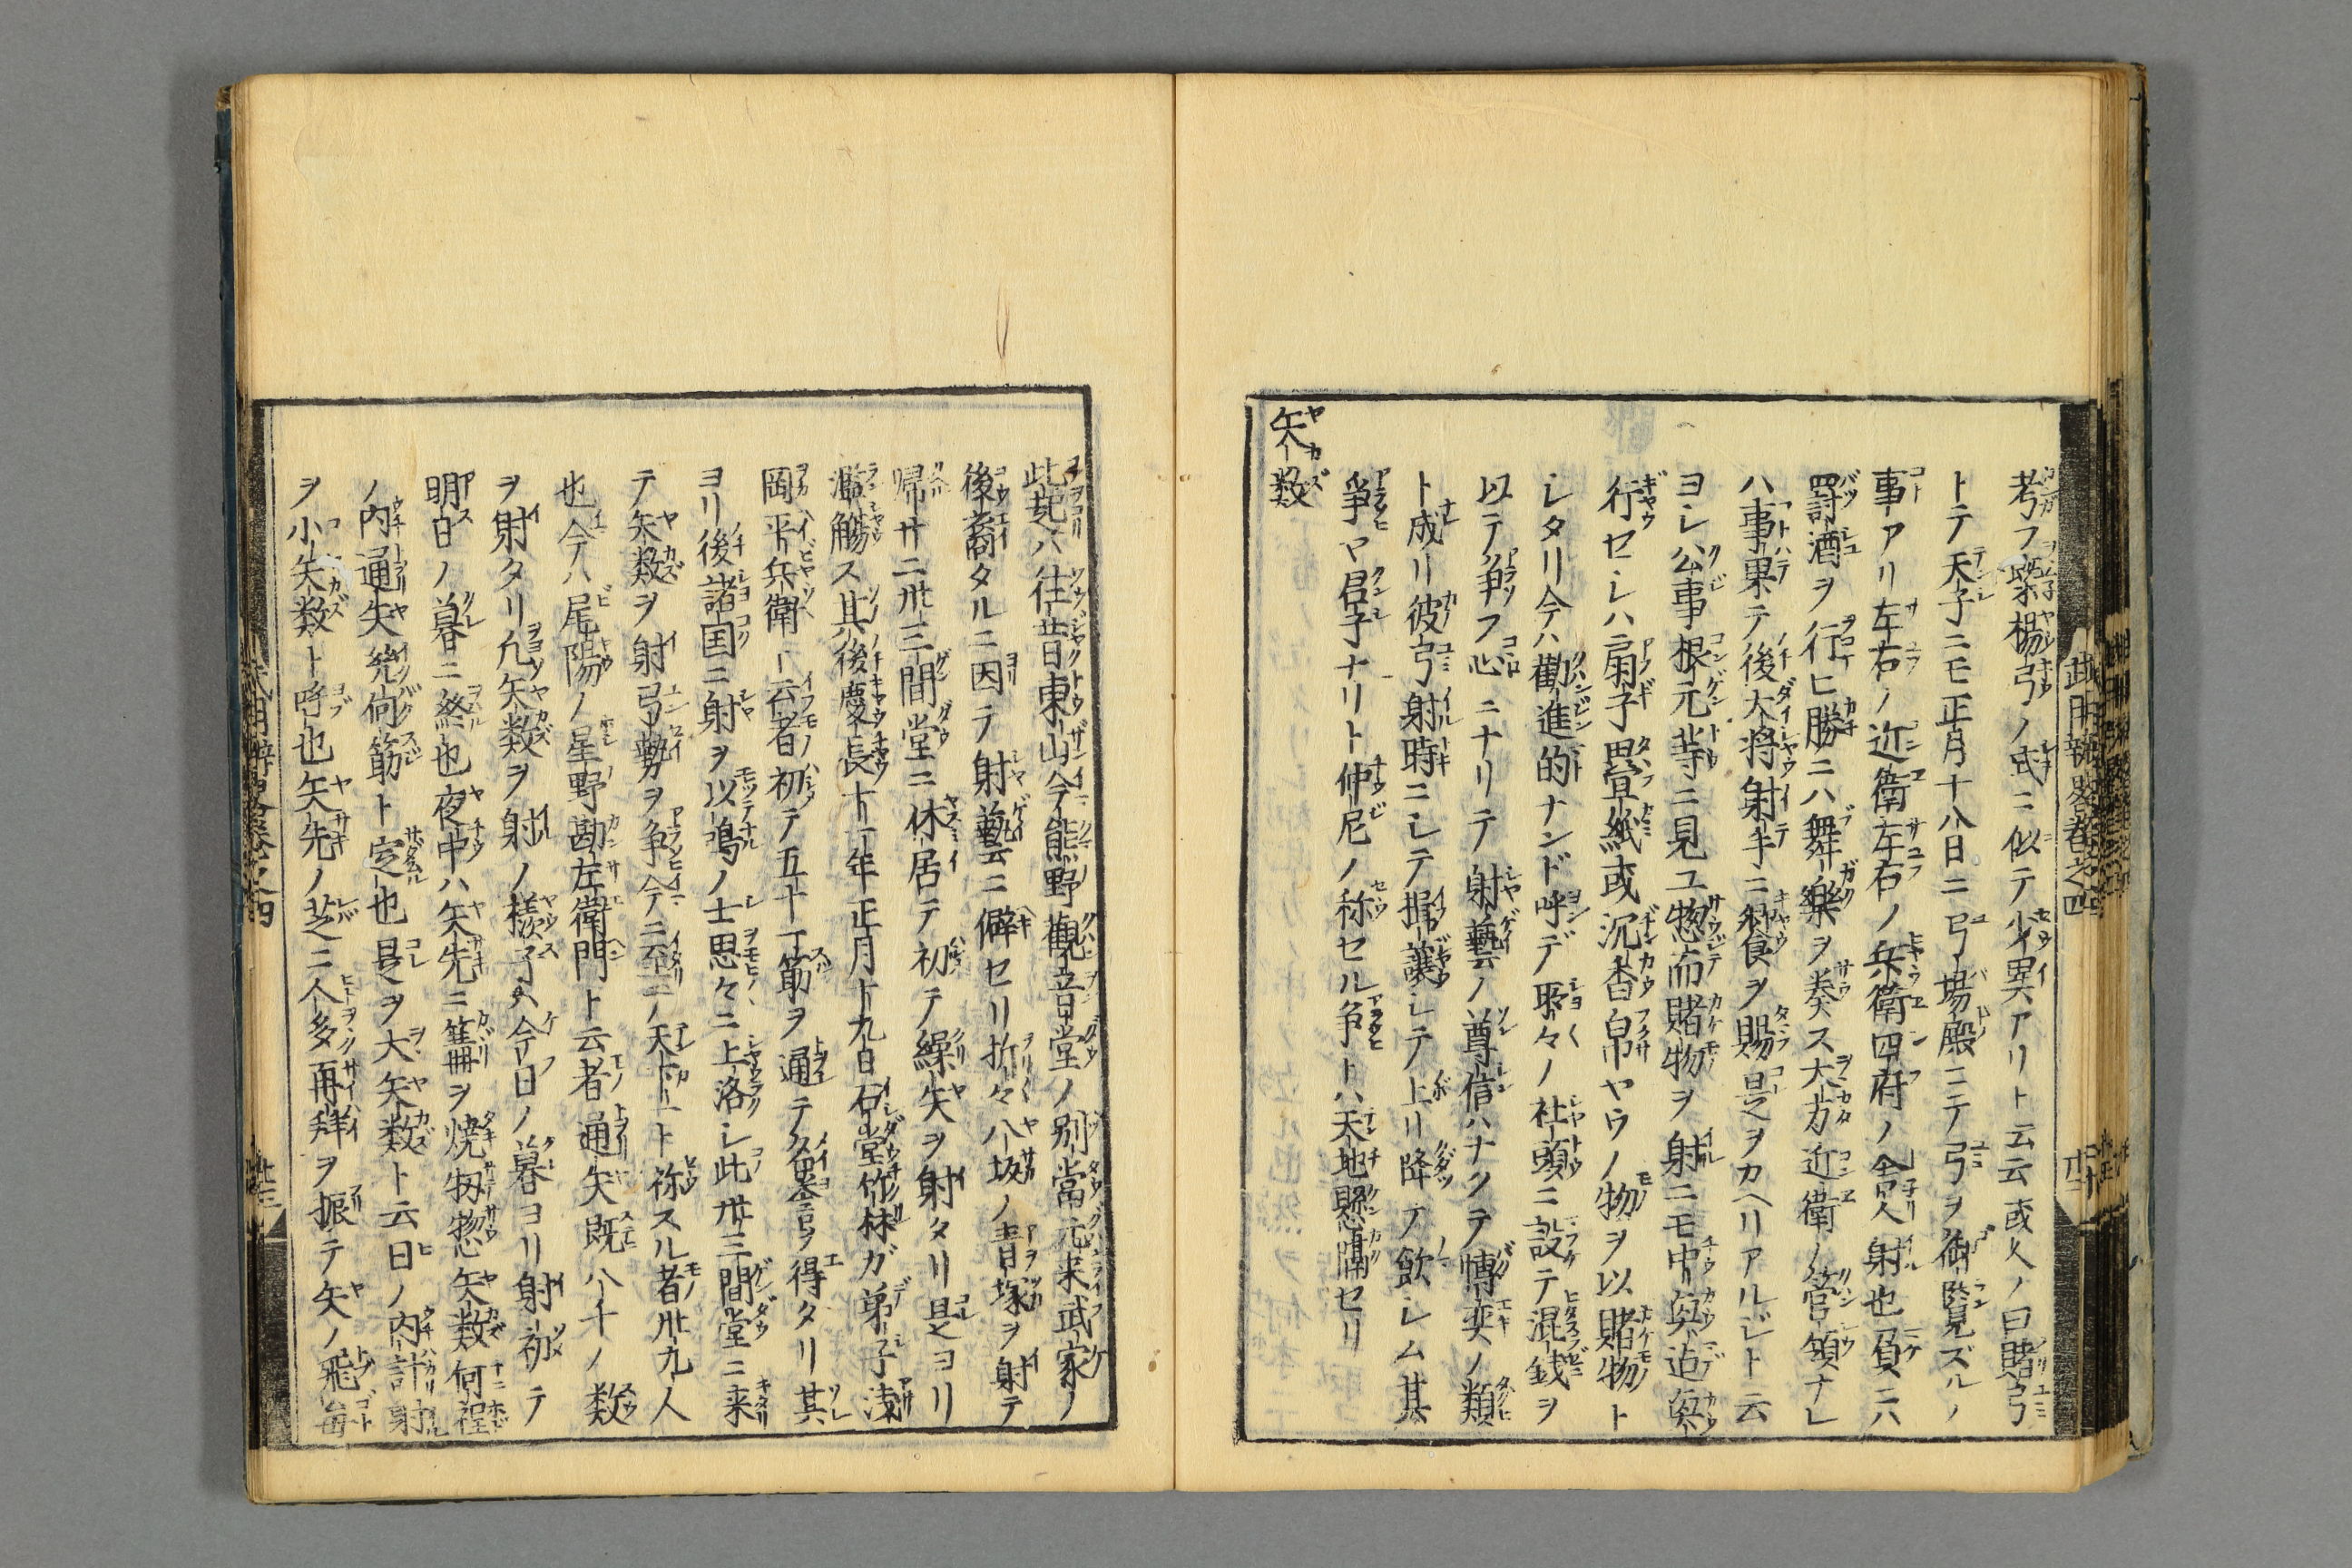 考フ㮤楊弓ノ式ニ似テ少異アリト云云或人ノ曰賭弓
トテ天子ニモ正月十八日ニ弓場殿ニテ弓ヲ御覧ズルノ
事アリ左右ノ近衛左右ノ兵衛四府ノ舎人射也負ニハ
罸酒ヲ行ヒ勝ニハ舞樂ヲ奏ス大方近衛ノ管領ナレ
ハ事果テ後大将射手ニ饗食ヲ賜是ヲカヘリアルジト云
ヨシ公事根元䓁ニ見ユ惣而賭物ヲ射ニモ中
行セシハ扇子畳紙或沉香帛ヤウノ物ヲ以賭物ト
シタリ今ハ勸進的ナンド呼デ所々ノ社頭ニ設テ混錢ヲ
以テ争フ心ニナリテ射藝ノ尊信ハナクテ博奕ノ類
ト成リ彼弓射時ニシテ揖讓シテ上リ降テ飲シム其
争ヤ君子ナリト仲尼ノ称セル争トハ天地懸隔セリ
矢数
此起ハ往昔東山今熊野觀音堂ノ別當元来武家ノ
後裔タルニ因テ射藝ニ僻セリ折々八坂ノ青塚ヲ射テ
帰サニ卅三間堂ニ休居テ初テ繰矢ヲ射タリ是ヨリ
濫觴ス其後慶長十一年正月十九日石堂竹林ガ弟子淺
岡平兵衛ト云者初テ五十一筋ヲ通テ名誉ヲ得タリ其
ヨリ後諸国ニ射ヲ以鳴ノ士思々ニ上洛シ此卅三間堂ニ来
テ矢数ヲ射弓勢ヲ争今ニ至ニ天下一ト称スル者卅九人
也今ハ尾陽ノ星野勘左衛門ト云者通矢既八千ノ数
ヲ射タリ凢矢数ヲ射ノ樣子ハ今日ノ暮ヨリ射初テ
明日ノ暮ニ終也夜中ハ矢先ニ篝ヲ焼扨惣矢数何程
ノ内通矢幾何筋ト定也是ヲ大矢数ト云日ノ内計射
ヲ小矢数ト呼也矢先ノ芝ニ人多再拜ヲ振テ矢ノ飛毎